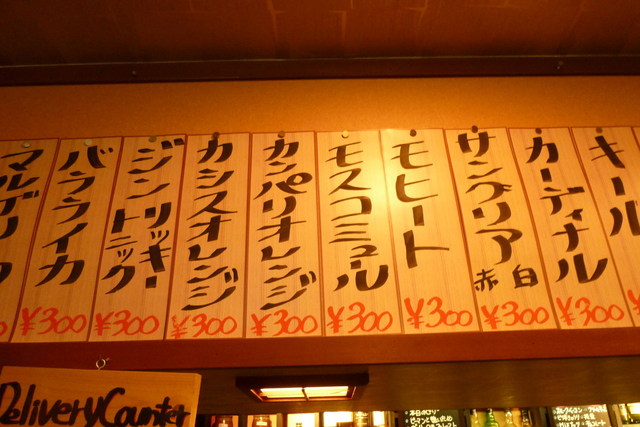 マルゲリタ
バラライカ
¥300
ジンリッキー
トニック
¥300
カシスオレンジ
¥300
カンパリオレンジ
¥300
モスコミュール
¥300
モヒート
¥300
サングリア
赤 白
¥300
カーディナル
¥300
キール
Delivery Counter